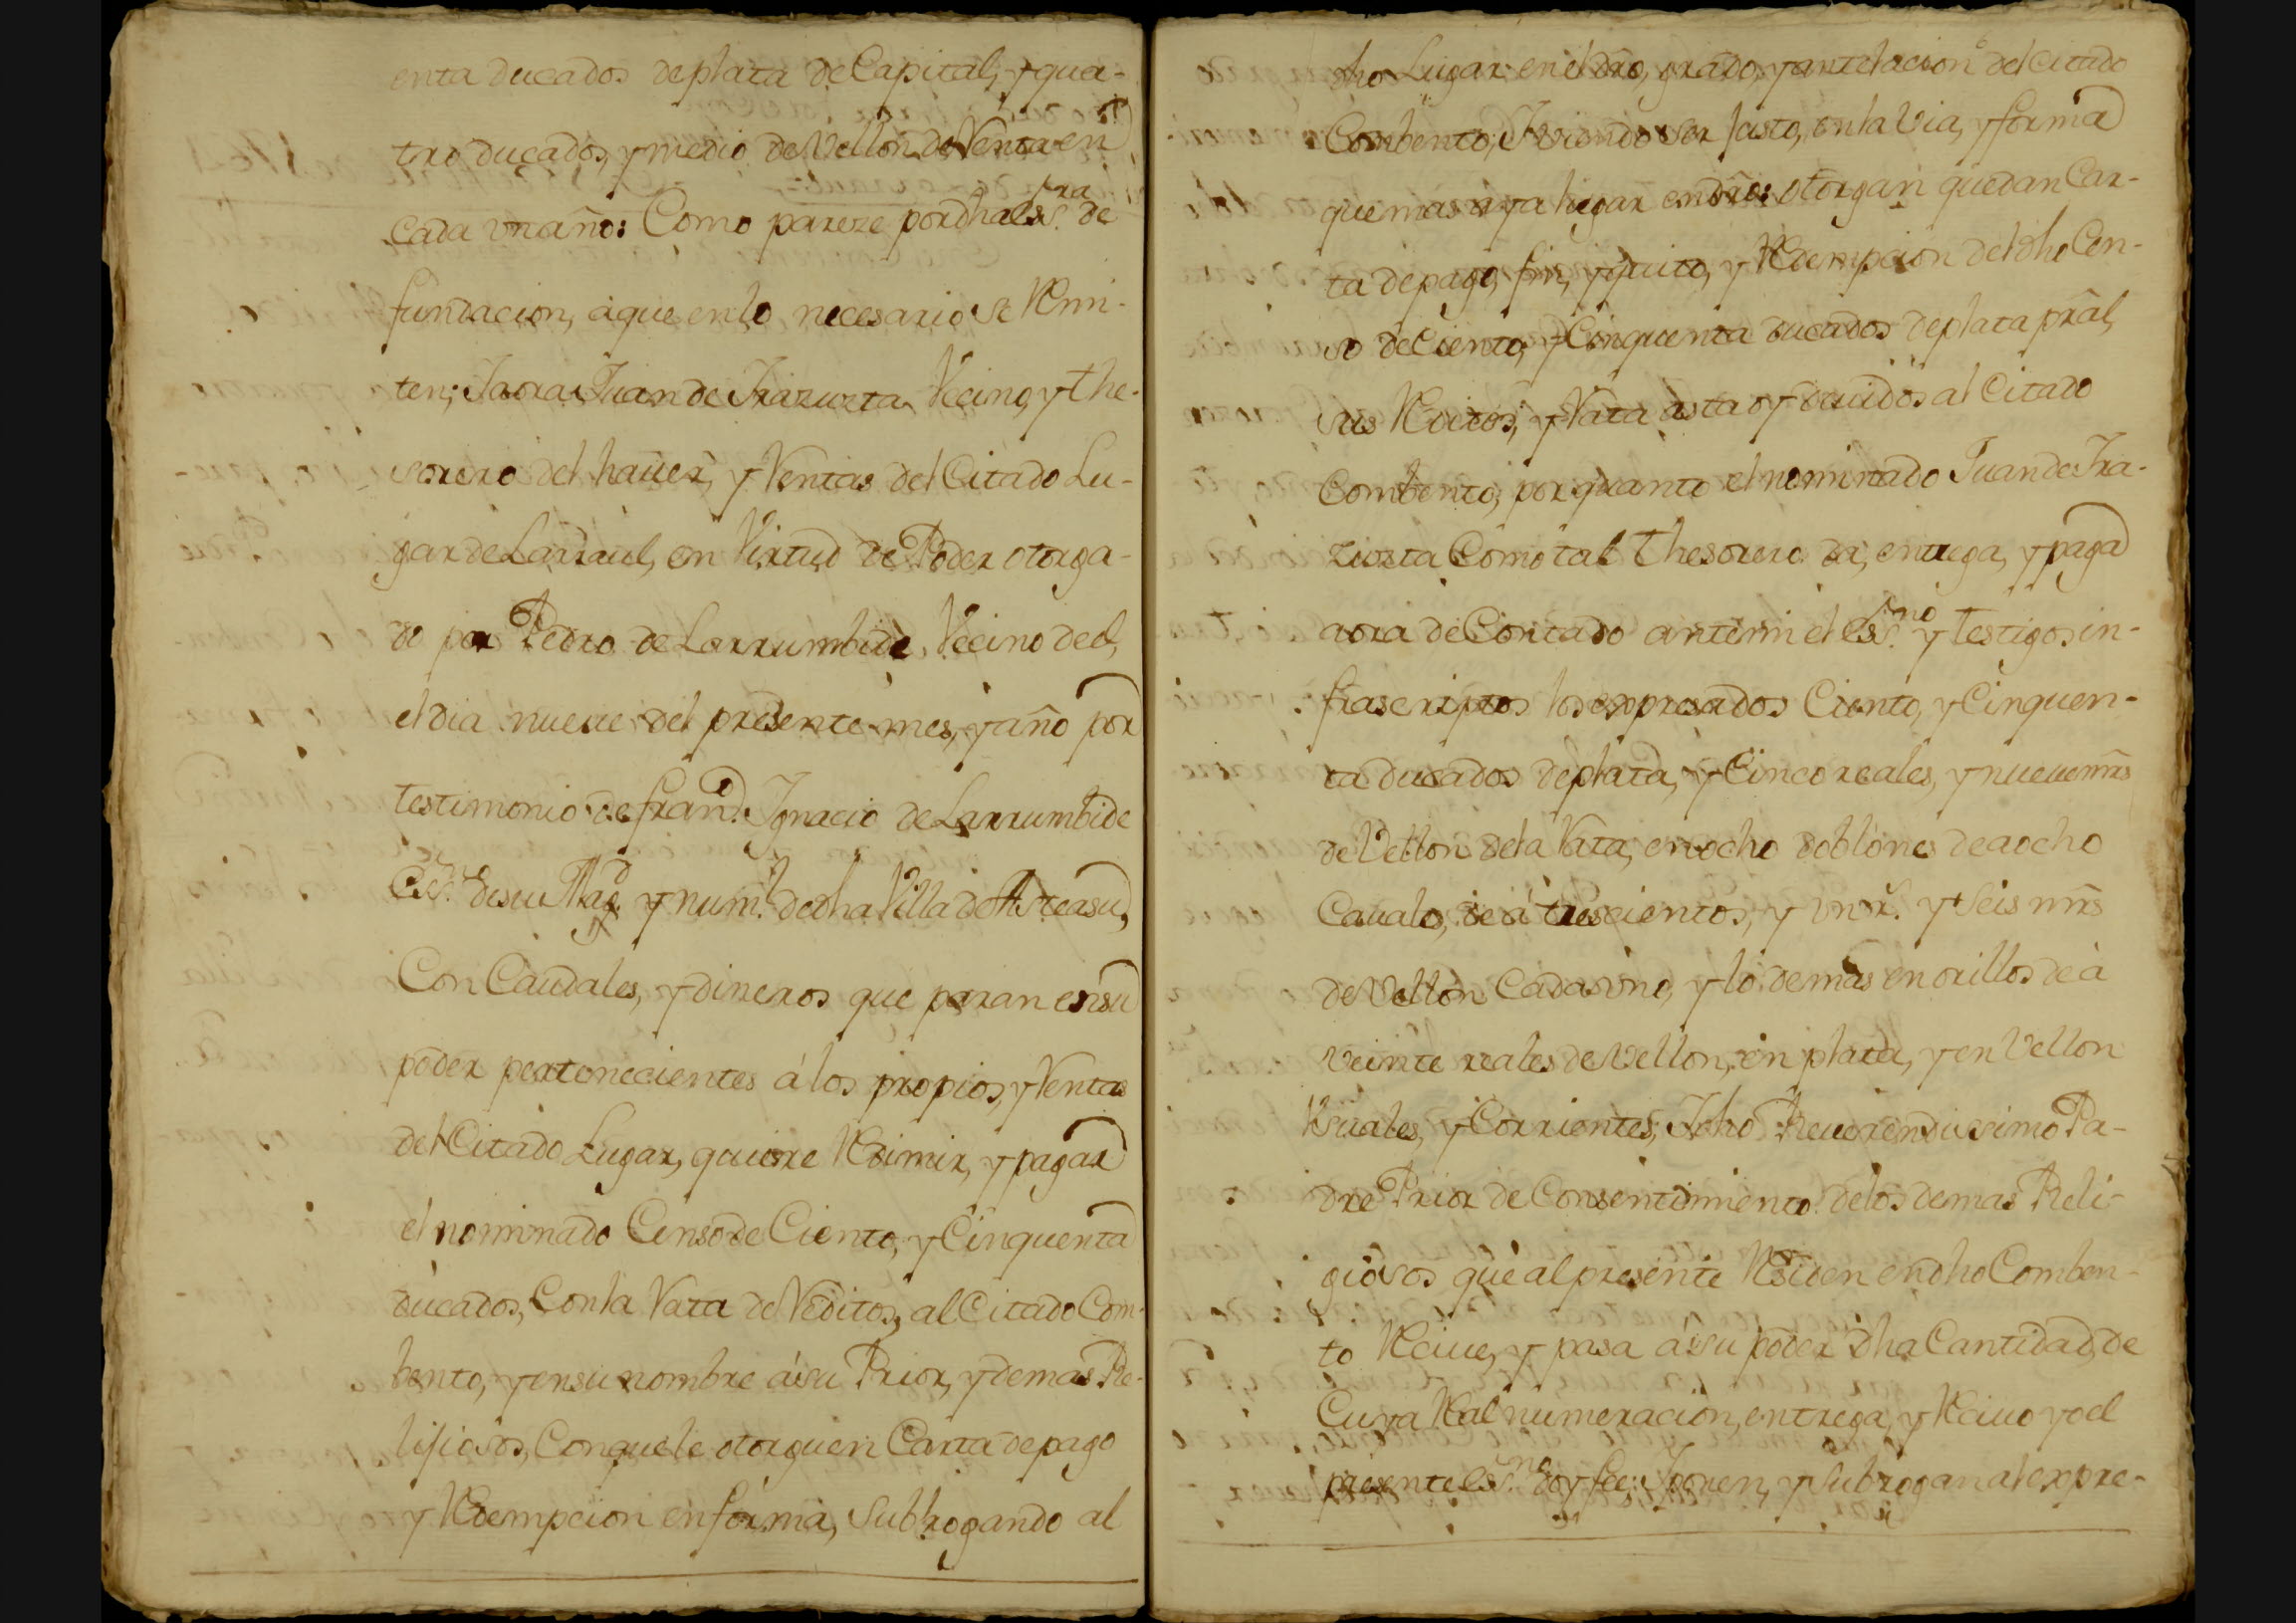 enta ducados de plata de Capital, y qua-
tro ducados, y medio de Vellon de Renta en
cada vn año: Como pareze por dha esSra. de
fundacion, aque en lo necesario se Remi-
ten; Iaora Juan de Irazuzta Vecino, y the-
sorero del hauer, y Rentas del Citado Lu-
gar de Larraul, en Virtud de Poder otorga-
do por Pedro de Larrumbide Vecino de el,
el dia nueue del presente mes, y año por
testimonio de fran.co Ignacio de Larrumbide
Ess.no de su Mag.d y num.l de dha Villa de Asteasu,
Con Caudales, y dineros que paran en su
poder pertenecientes á los propios, y Rentas
del Citado Lugar, quiere Redimir, y pagar
el nominado Censo de Ciento, y Cinquenta
ducados, Con la Rata de Reditos, al Citado Com-
bento, y en su nombre á su Prior, y demas Re-
lijiosos, Con que le otorguen Carta de pago
y Redempcion en forma, Subrrogando al
dho Lugar en el dro, grado, y antelacion del Citado
Combento; I viendo ser justo, en la Via, y forma
que mas aya lugar en dro: otorgan quedan Car-
ta de pago, fin, y quito, y Redempcion del dho Cen-
so de Ciento, y Cinquenta ducados de plata pral,
sus Reditos, y Rata asta oy deuidos al Citado
Combento; por quanto el nominado Juan de Ira-
zusta Como tal thesorero da, entrega, y paga
aora de Contado ante mi el esS.no y testigos in-
frascriptos los expresados Ciento, y Cinquen-
ta ducados de plata, y Cinco reales, y nueue mrs
de Vellon de la Rata, en ocho doblones de aocho
Caualo, de á trescientos, y vn r.s y seis mrs
de Vellon Cada vno, y lo demas en orillos de à
veinte reales de Vellon, en plata, y en Vellon
Vsuales, y Corrientes; I dho Reuerendissimo Pa-
dre Prior de Consentimiento de los demas Reli-
giosos que al presente Residen en dho Comben-
to Reciue, y pasa á su poder dha Cantidad, de
Cuya Real numeracion, entrega, y Reciuo yo el
presente esS.no doy fee; I ponen, y Subrogan al expre-